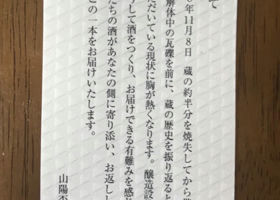 て
年11月8日　蔵の約半分を焼失してから
解体中の瓦礫を前に、蔵の歴史を振り返ると
だいている現状に胸が熱くなります。醸造設
して酒をつくり、お届けできる有難みを感
たちの酒があなたの側に寄り添い、お返しし
この一本をお届けいたします。
山陽盃